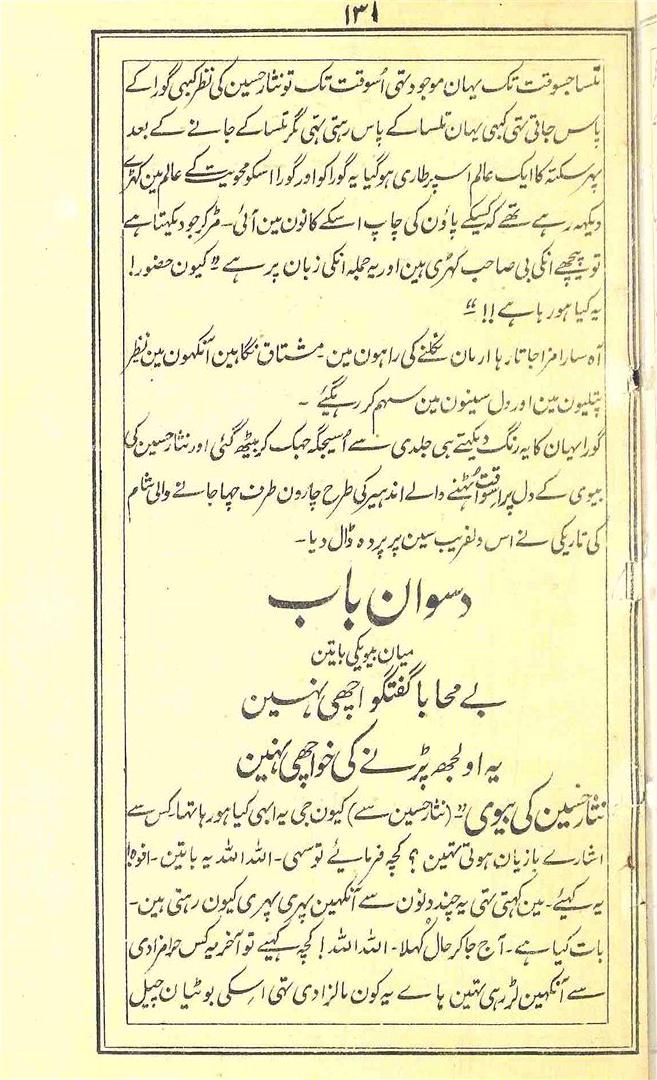 ۱۳۱
تلسا جسوقت تک یہان موجود تہی اُسوقت تک تو نثار حسین کی نظر کبہی گورا کے
پاس جاتی تہی کبہی یہان تلسا کے پاس رہتی تہی مگر تلسا کے جانے کے بعد
پہر سکتہ کا ایک عالم اسپر طاری ہو گیا یہ گورا کو اور گورا اسکو محویت کے عالم مین کہڑے
دیکہہ رہے تھے کہ کسیکے پاؤن کی چاپ اسکے کانون مین آئی۔ مڑ کر جو دیکہتا ہے
تو پیچھے انکی بی صاحب کہڑی ہین اور یہ جملہ انکی زبان پر ہے ”کیون حضور!
یہ کیا ہو رہا ہے!!“
آہ سارا مزا جاتا رہا ارمان نکلنے کی راہون مین۔ مشتاق نگاہین آنکہون مین نظر
پتلیون مین اور دل سینون مین سہم کر رہگئے۔
گورا یہان کا یہ رنگ دیکہتے ہی جلدی سے اُسیجگہ جہک کر بیٹھ گئی اور نثار حسین کی
بیوی کے دل پر اسوقت اُٹہنے والے اندہیر کی طرح چارون طرف چہا جانے والی شام
کی تاریکی نے اس دلفریب سین پر پردہ ڈال دیا۔
دسوان باب
میان بیویکی باتین
بے محابا گفتگو اچھی نہین
یہ اولجھ پڑنے کی خو اچھی نہین
نثار حسین کی بیوی ”(نثار حسین سے) کیون جی یہ ابہی کیا ہو رہا تہا۔ کس سے
اشارے بازیان ہوتی تہین؟ کچہ فرمائیے تو سہی۔ اللہ اللہ یہ باتین۔ افوہ!
یہ کہیئے۔ مین کہتی تہی یہ چند دنون سے آنکہین پہری پہری کیون رہتی ہین۔
بات کیا ہے۔ آج جا کر حال کُہلا۔ اللہ اللہ! کچہ کہیے تو آخر یہ کس حرامزادی
سے آنکہین لڑ رہی تہین ہاے یہ کون مالزادی تہی اسکی بوٹیان چیل